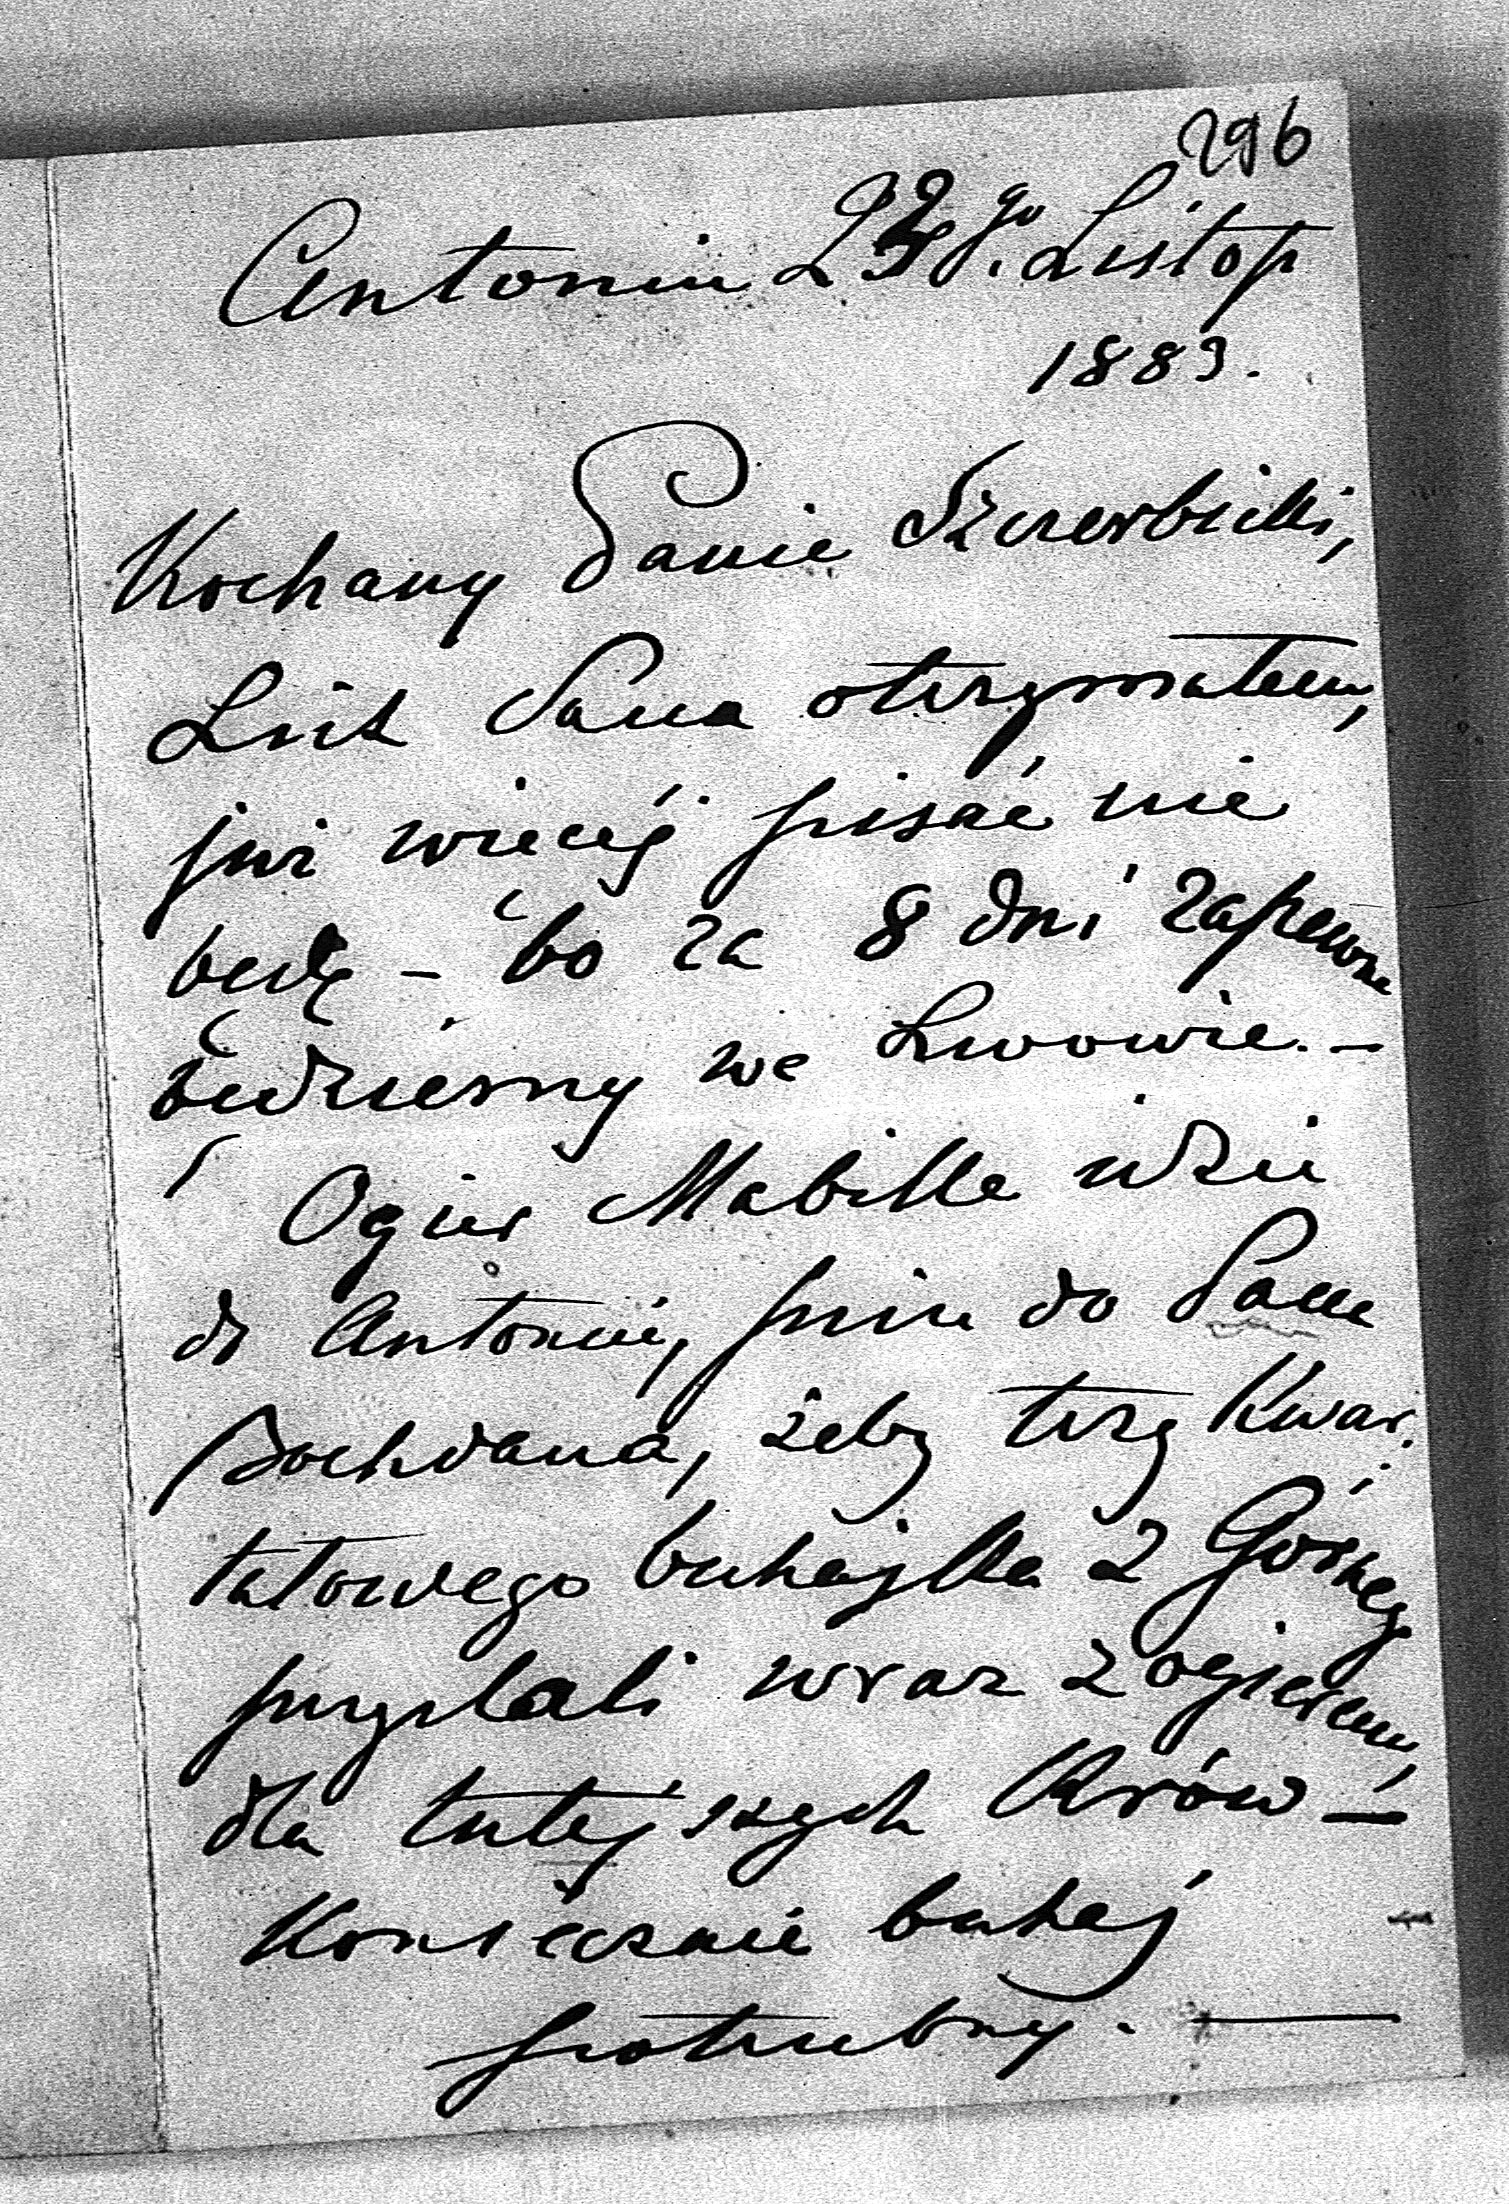 296
Antonin 23go. Listop
1883.
Kochany Panie Szczerbicki,
List Pana otrzymałem,
już więcej pisać nie
będę – bo za 8 dni zapewne
będziemy we Lwowie. –
Ogier Mabille idzie
do Antonin, pisze do Pana
Bochdana, żeby trzy kwar.
tałowego buhajka z Górnej
przysłali wraz z ogierem,
dla tutejszych krów –
Koniecznie buhaj
potrzebny. —